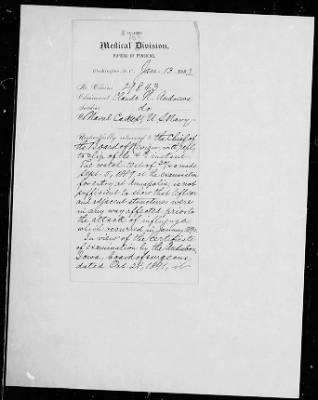 Medical Division,
BUREAU OF PENSIONS,
Washington, D. C., Jan. 13, 1892
No. Claim 29843
Claimant Claude N. Andrews
Soldier Do
Naval Cadet, U. S. Navy.
Respectfully returned to the Chief of
the Board of Review, with ref.
to slip of the instant.
The watch test of made
Sept. 5, 1889, at the examination
for entry at Annapolis, is not
sufficient to show that left ear
and adjacent structures were
in any way affected prior to
the attack of influenza
which occurred in January 1890.
In view of the certificate
of examination by the
Iowa, board of surgeons
dated Oct. 28, 1891, it